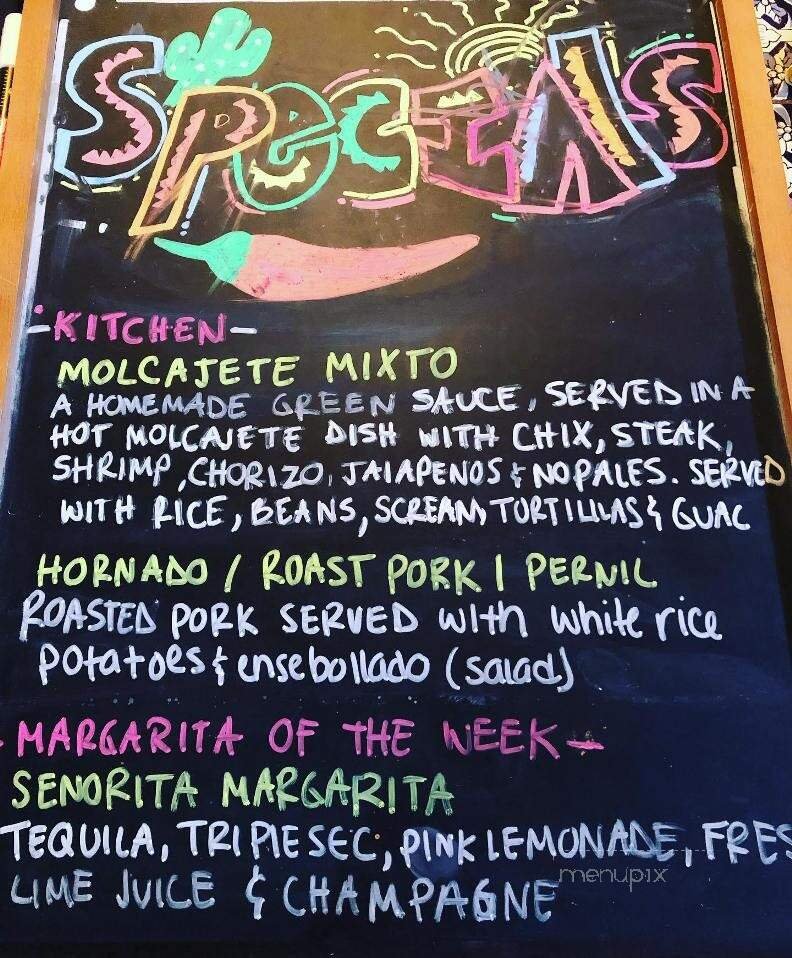 SPECIALS
-KITCHEN-
MOLCAJETE MIXTO
A HOMEMADE GREEN SAUCE, SERVED IN A
HOT MOLCAJETE DISH WITH CHIX, STEAK,
SHRIMP, CHORIZO, JALAPENOS & NOPALES. SERVED
WITH RICE, BEANS, SCREAM, TORTILLAS & GUAC
HORNADO / ROAST PORK | PERNIL
ROASTED PORK SERVED with white rice
potatoes & ensebollado (salad)
- MARGARITA OF THE WEEK -
SENORITA MARGARITA
TEQUILA, TRIPLE SEC, PINK LEMONADE, FRES
LIME JUICE & CHAMPAGNE
menupix